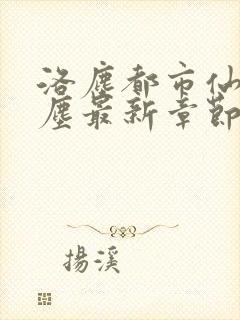 洛塵都市仙
塵最新章節
揚溪